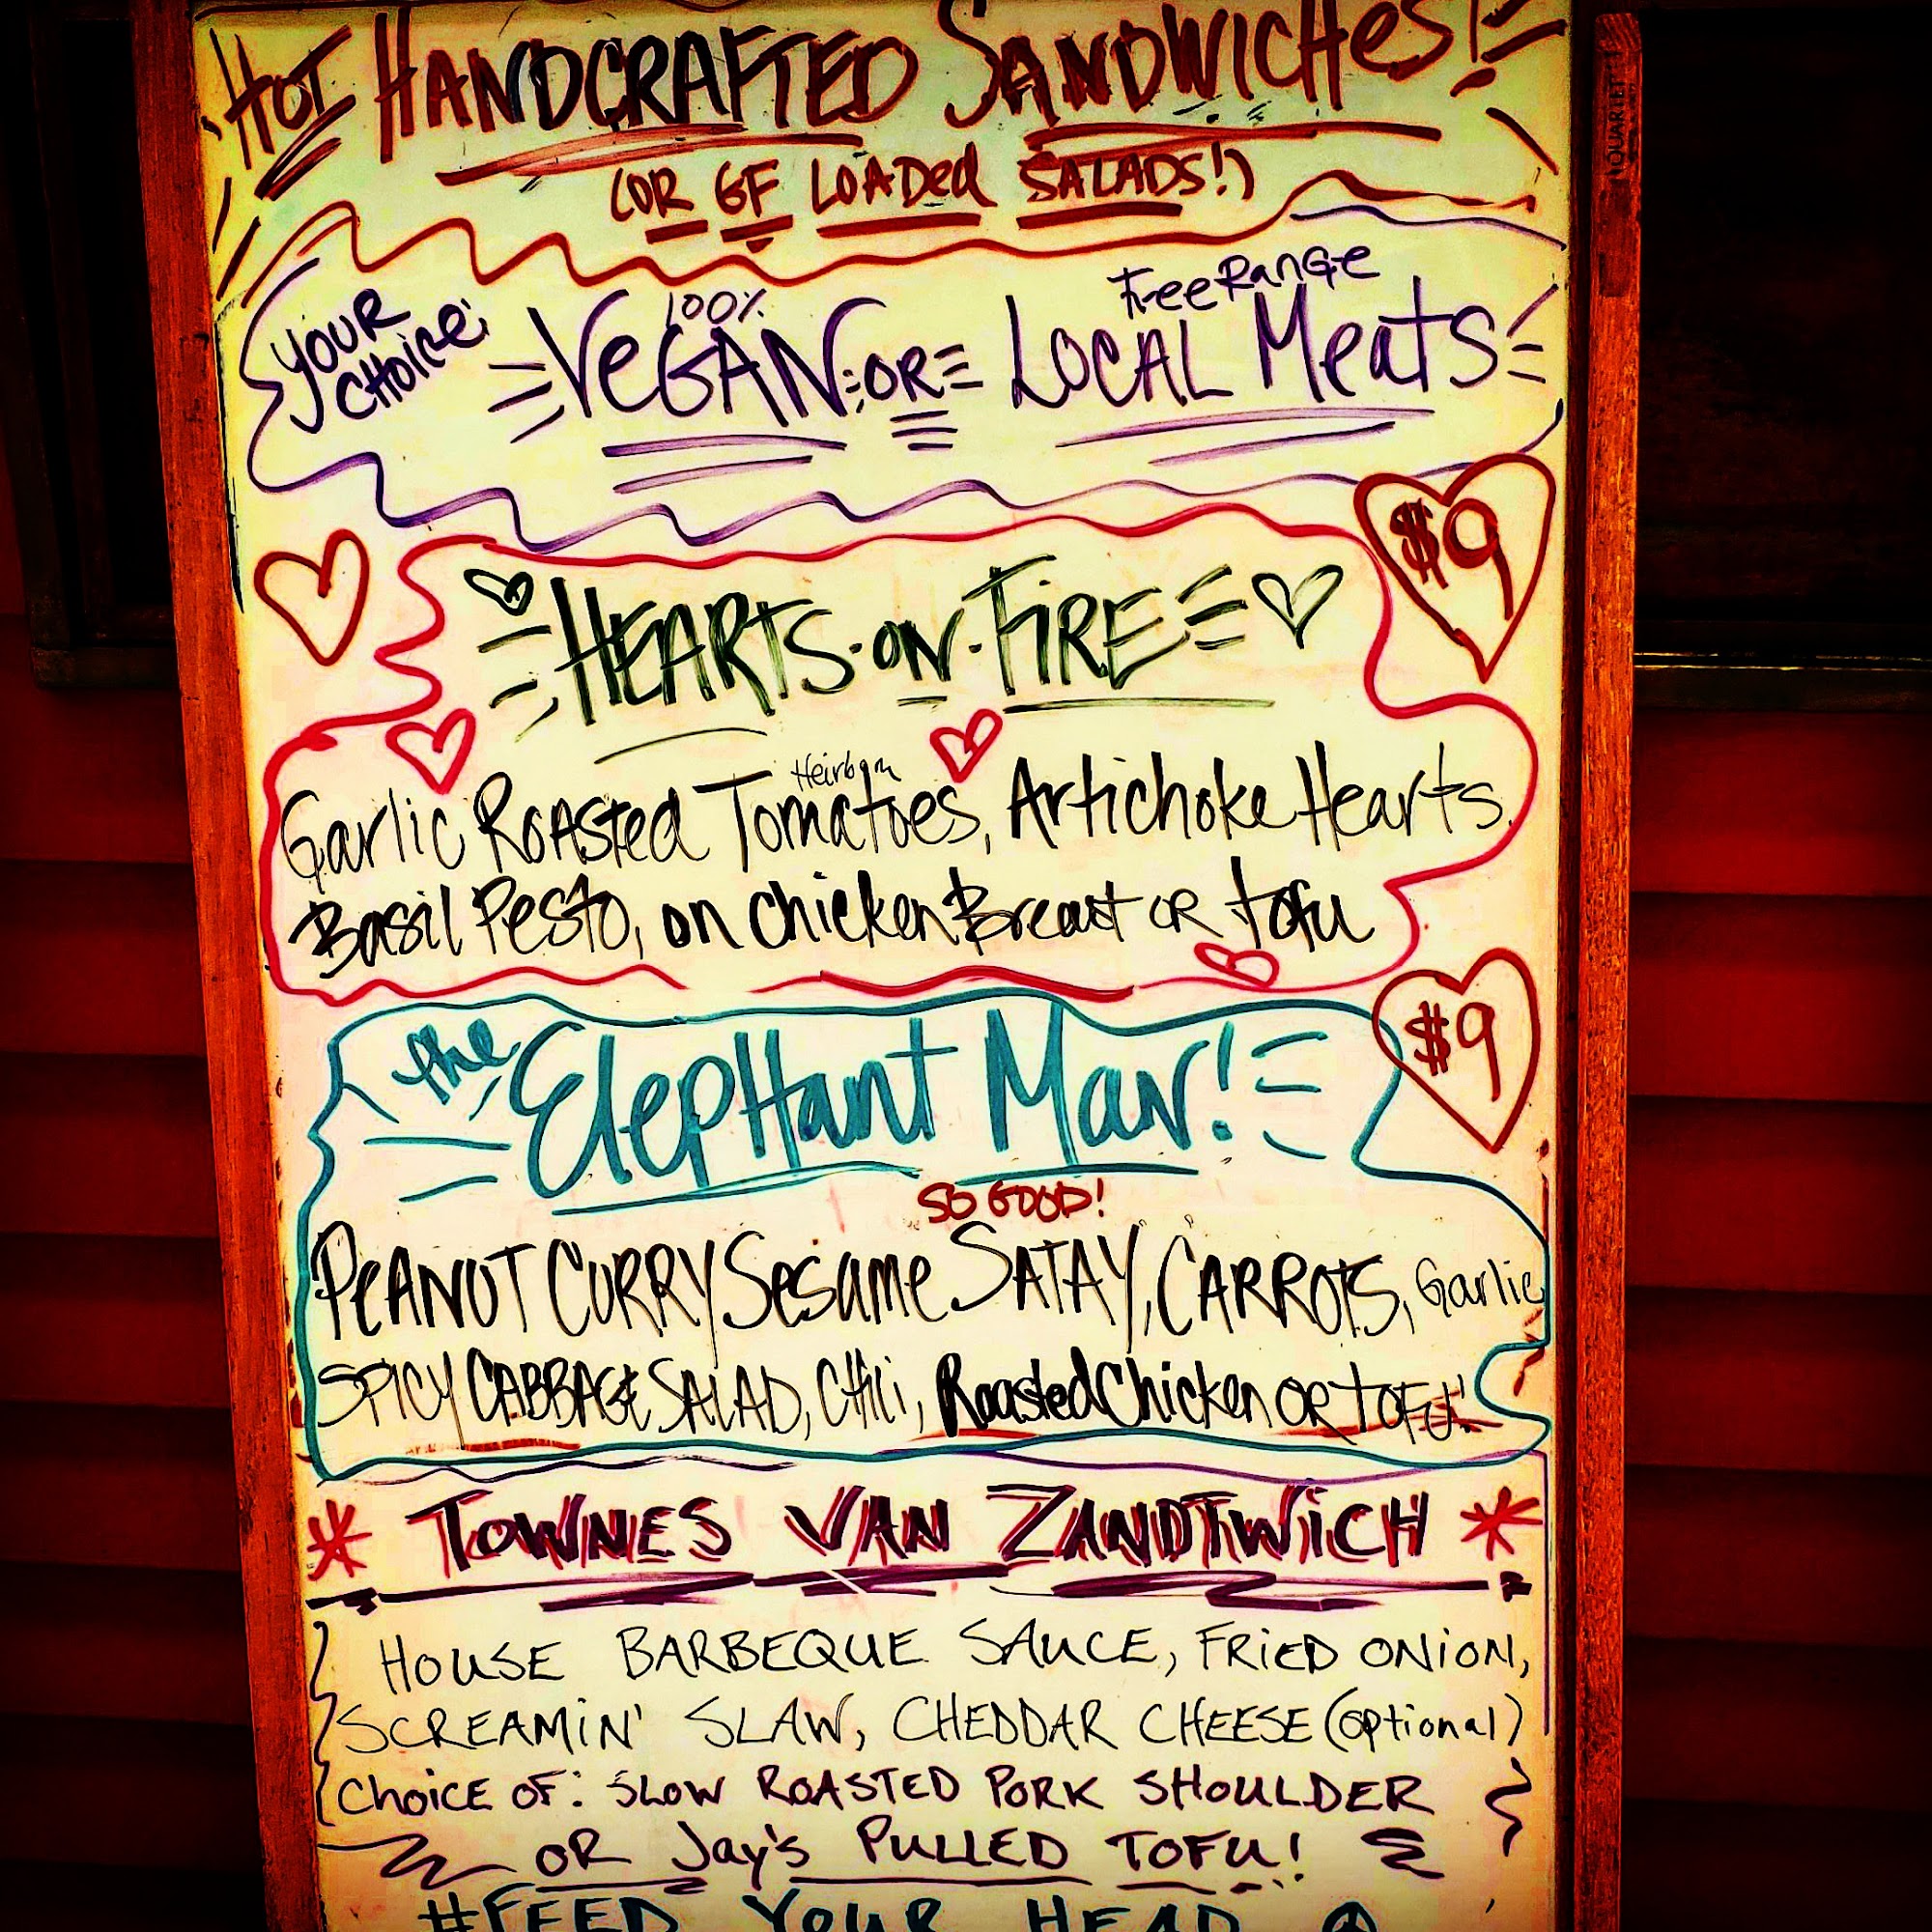 HOT HANDCRAFTED SANDWICHES!
(OR GF LOADED SALADS!)
YOUR CHOICE:
100% Free Range
VEGAN OR LOCAL Meats
$9
HEARTS·ON·FIRE
Heirloom
Garlic ROASTED Tomatoes, Artichoke Hearts,
Basil Pesto, on chicken Breast OR tofu
$9
the Elephant Man!
SO GOOD!
PEANUT CURRY Sesame SATAY, CARROTS, Garlic
SPICY CABBAGE SALAD, CHili, Roasted Chicken OR TOFU!
* TOWNES VAN ZANDTWICH *
HOUSE BARBEQUE SAUCE, FRIED ONION,
SCREAMIN' SLAW, CHEDDAR CHEESE (optional)
CHOICE OF: SLOW ROASTED PORK SHOULDER
OR Jay's PULLED TOFU!
#FEED YOUR HEAD